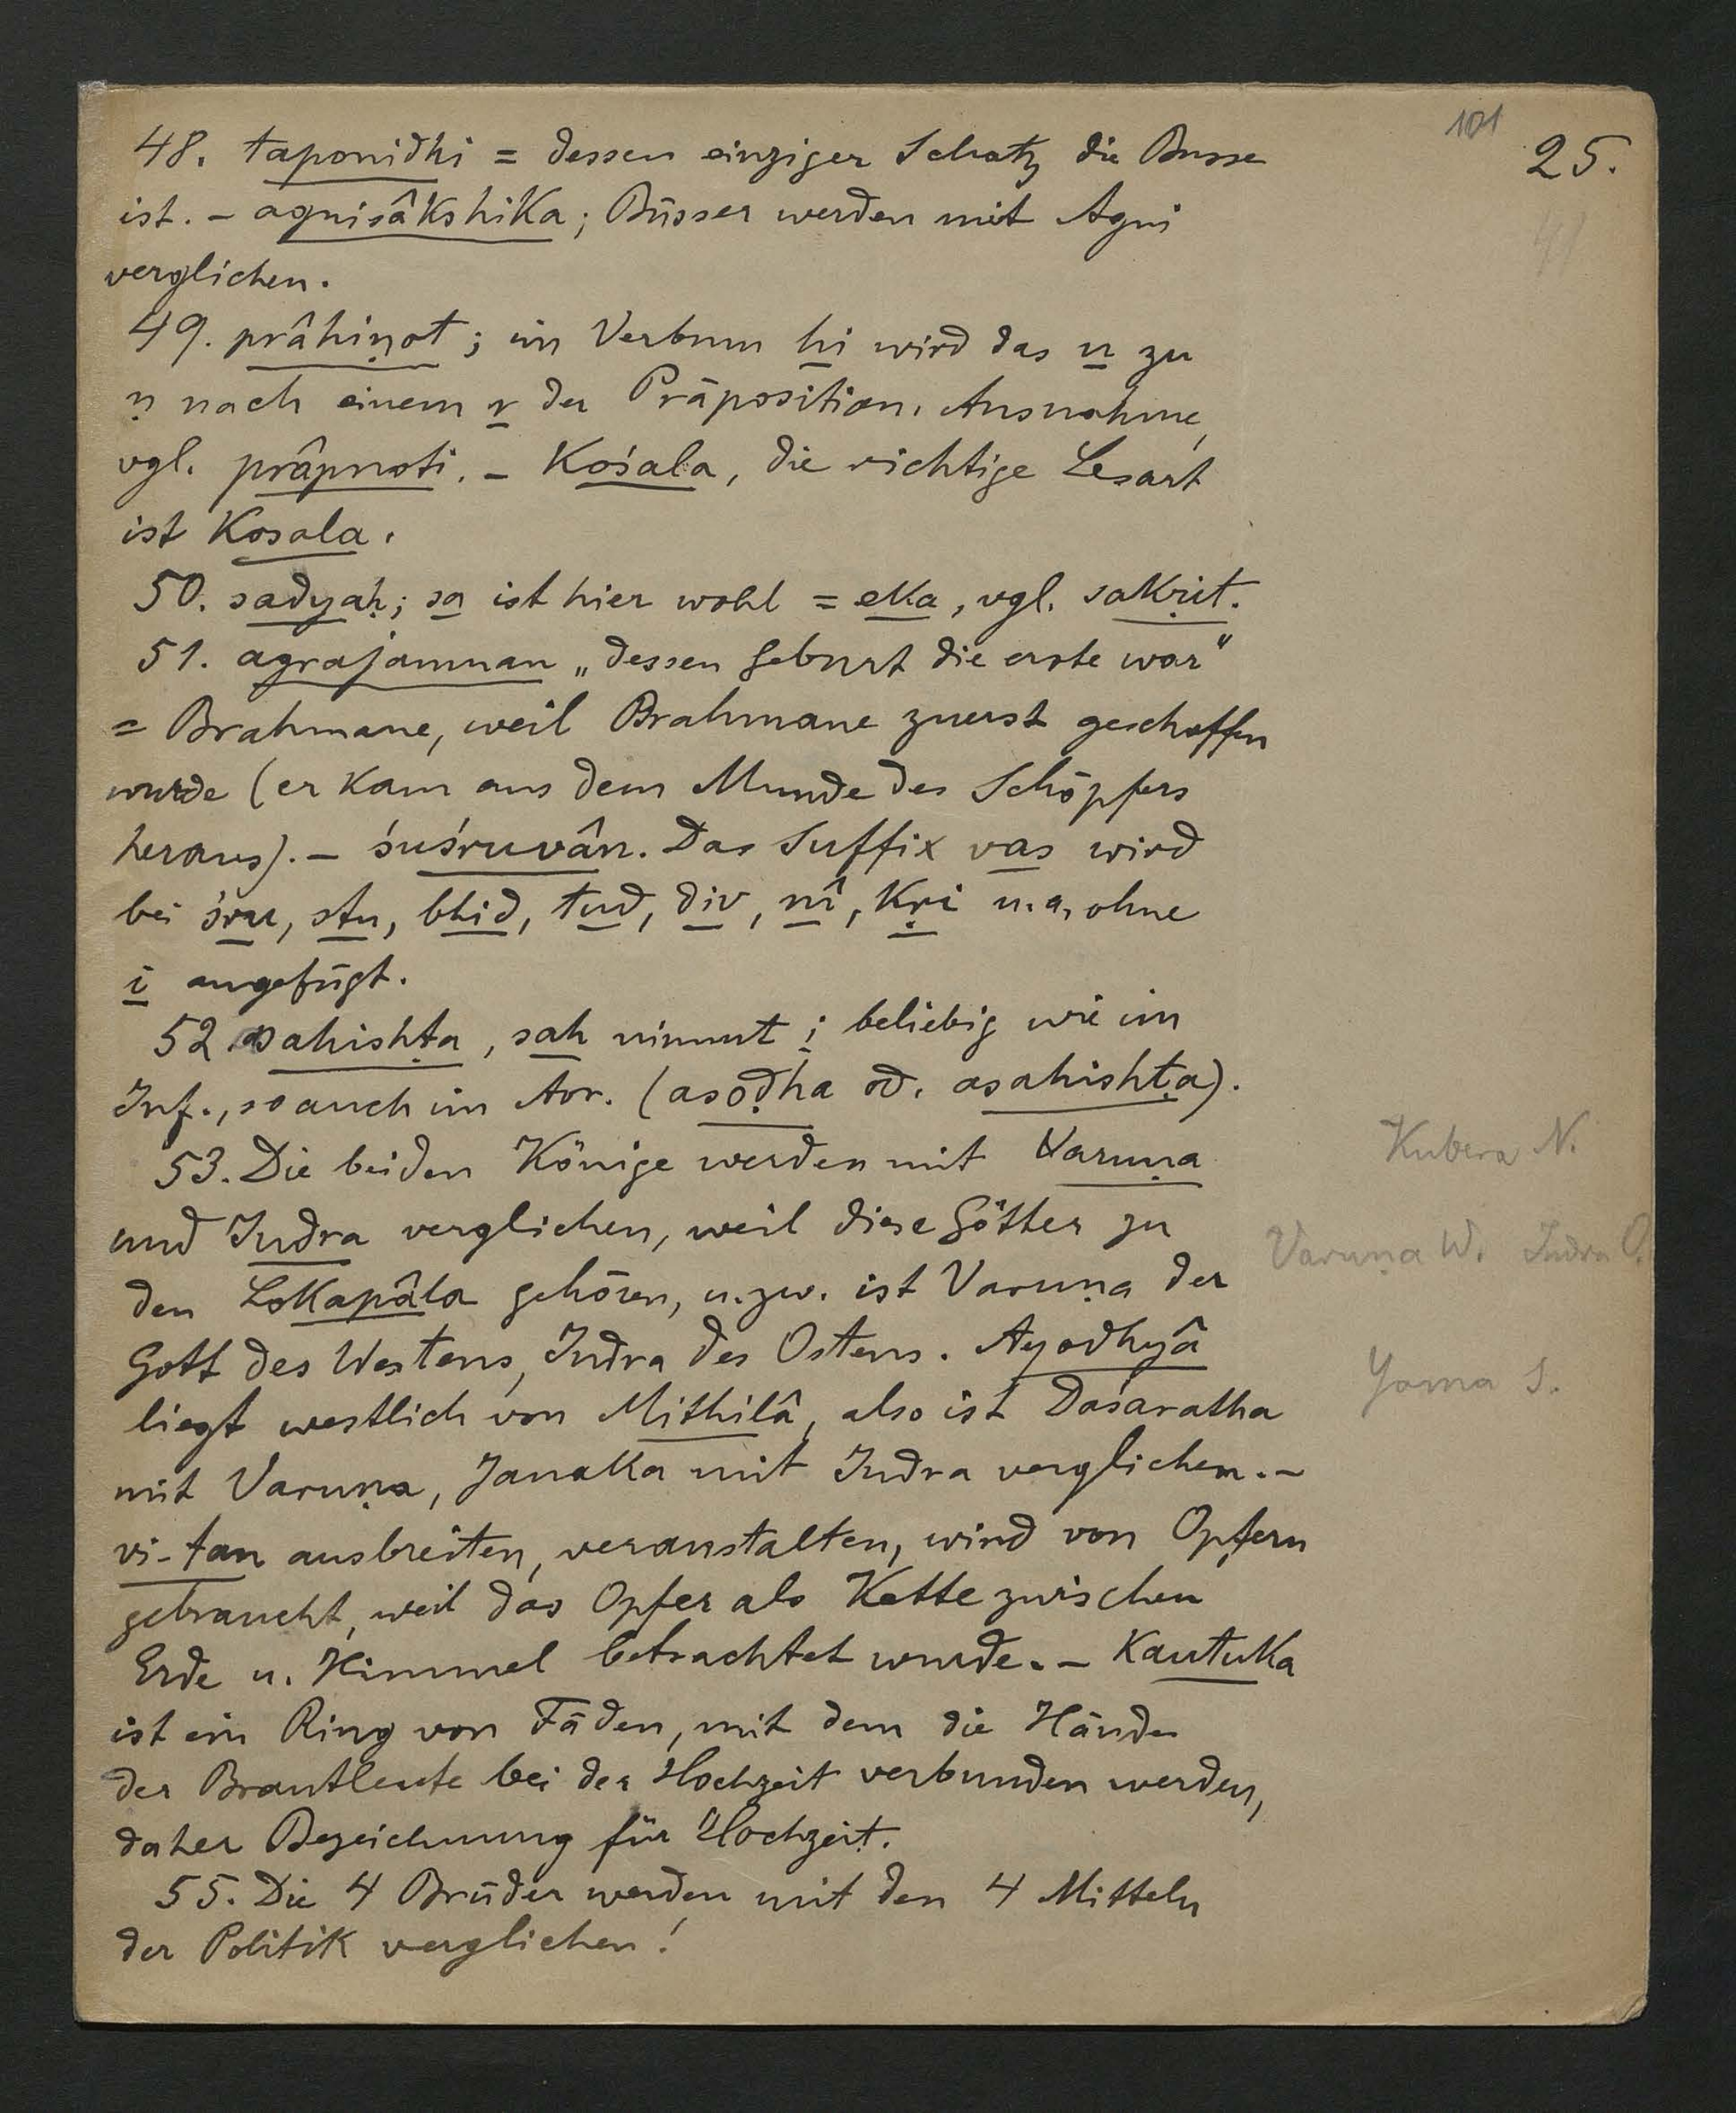 101
25.
41
48. taponidhi = dessen einziger Schatz die Busse
ist. - agnisâkshika; Büsser werden mit Agni
verglichen.
49. prâhiṇot; im Verbum hi wird das n zu
ṇ nach einem r der Präposition. Ausnahme,
vgl. prâpnoti. - Kośala, die richtige Lesart
ist Kosala.
50. sadyaḥ; sa ist hier wohl = eka, vgl. sakṛit.
51. agrajanman „dessen Geburt die erste war"
= Brahmane, weil Brahmane zuerst geschaffen
wurde (er kam aus dem Munde des Schöpfers
heraus). - śuśruvân. Das Suffix vas wird
bei śru, stu, bhid, tud, div, nî, kṛi u. a. ohne
i angefügt.
52. sahishṭa, sah nimmt i beliebig wie im
Inf., so auch im Aor. (asoḍha od. asahishṭa).
53. Die beiden Könige werden mit Varuṇa
Kubera N.
und Indra verglichen, weil diese Götter zu
Varuṇa W. Indra O.
den Lokapâla gehören, u. zw. ist Varuṇa der
Gott des Westens, Indra des Ostens. Ayodhyâ
Yama S.
liegt westlich von Mithilâ, also ist Daśaratha
mit Varuṇa, Janaka mit Indra verglichen. -
vi-tan ausbreiten, veranstalten, wird von Opfern
gebraucht, weil das Opfer als Kette zwischen
Erde u. Himmel betrachtet wurde. - Kautuka
ist ein Ring von Fäden, mit dem die Hände
der Brautleute bei der Hochzeit verbunden werden,
daher Bezeichnung für Hochzeit.
55. Die 4 Brüder werden mit den 4 Mitteln
der Politik verglichen!